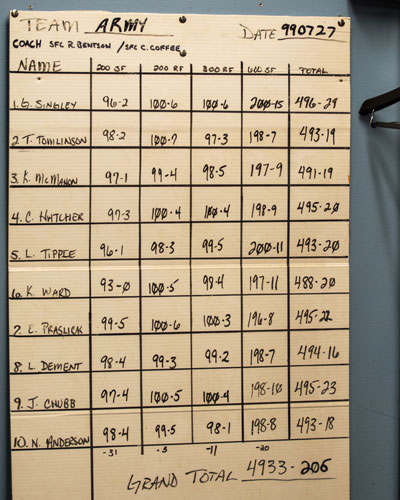 TEAM ARMY DATE 990727
COACH SFC R. BENTSON / SFC C. COFFEE
NAME 200 SF 200 RF 300 RF 600 SF TOTAL
1. G. SINGLEY 96-2 100-6 100-6 200-15 496-29
2. T. TOMLINSON 98-2 100-7 97-3 198-7 493-19
3. K. McMAHON 97-1 99-4 98-5 197-9 491-19
4. C. HATCHER 97-3 100-4 100-4 198-9 495-20
5. L. TIPPIE 96-1 98-3 99-5 200-11 493-20
6. K. WARD 93-0 100-5 98-4 197-11 488-20
7. E. PRASLICK 99-5 100-6 100-3 196-8 495-22
8. L. DEMENT 98-4 99-3 99-2 198-7 494-16
9. J. CHUBB 97-4 100-5 100-4 198-10 495-23
10. N. ANDERSON 98-4 99-5 98-1 198-8 493-18
-31 -5 -11 -20
GRAND TOTAL 4933-206